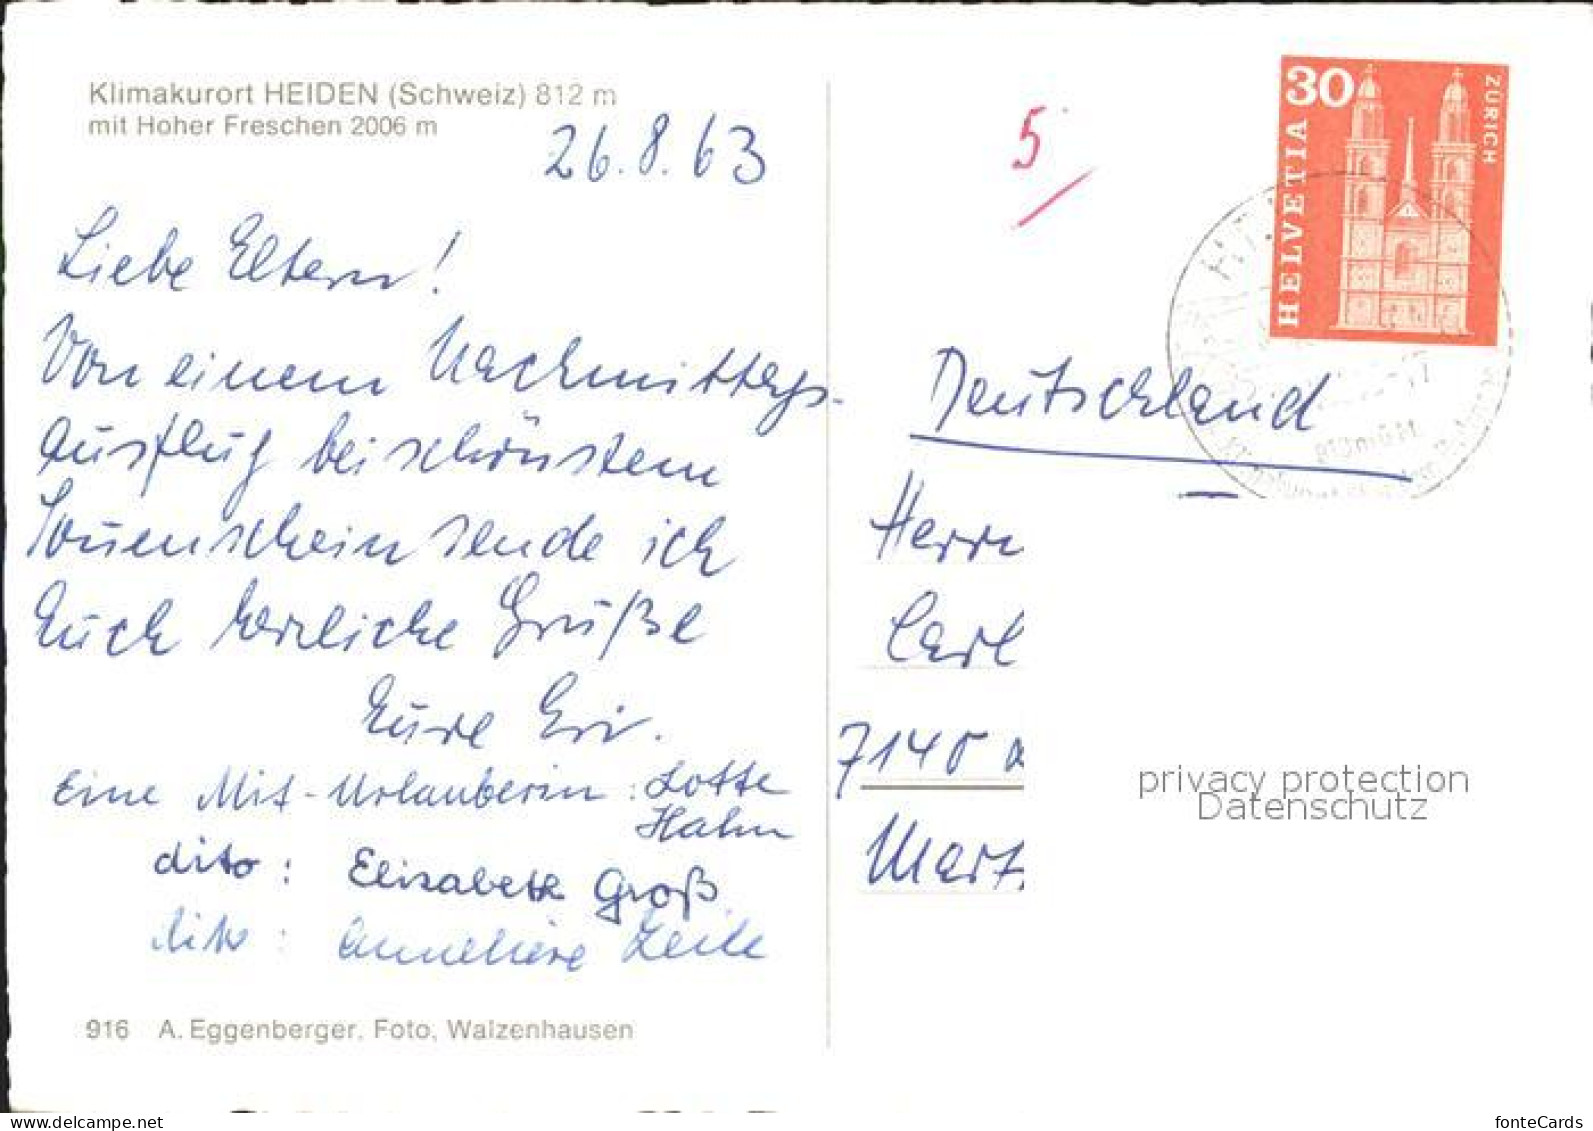 Klimakurort HEIDEN (Schweiz) 812 m
mit Hoher Freschen 2006 m
26.8.63
Liebe Eltern!
Von einem Nachmittags-
ausflug bei schönstem
Sonnenschein sende ich
Euch herzliche Grüße
Eure Eri.
Eine Mit-Urlauberin: Lotte
Hahn
dito: Elisabeth Groß
dito: Anneliese Zeile
916 A. Eggenberger, Foto, Walzenhausen
5/
30
HELVETIA
ZÜRICH
Deutschland
Herrn
Carl
7140
privacy protection
Datenschutz
www.delcampe.net
fonteCards